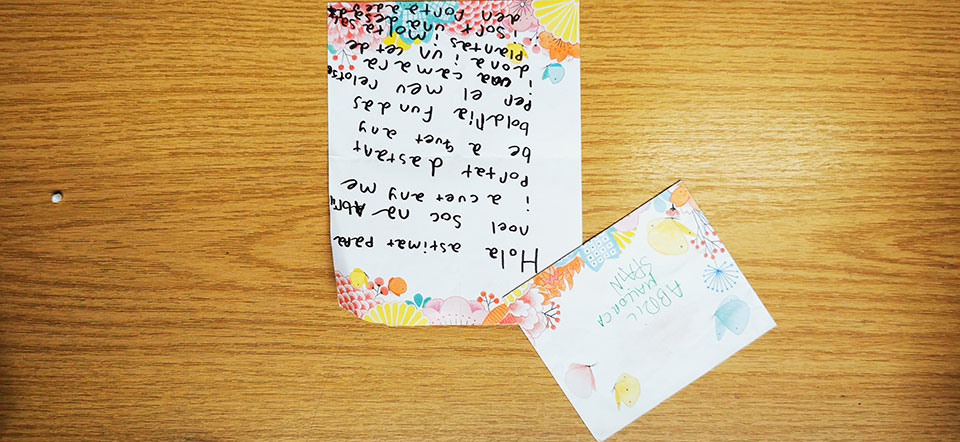 Hola astimat para
noel Soc na Abril
i a cuet any me
Portat dastant
be a quet any
boldria fundas
Per el meu relotse
i una camara
dona i un cet de
Plantas i molta
i sort una
den Porta
ABRIL
MALLORCA
SPAIN